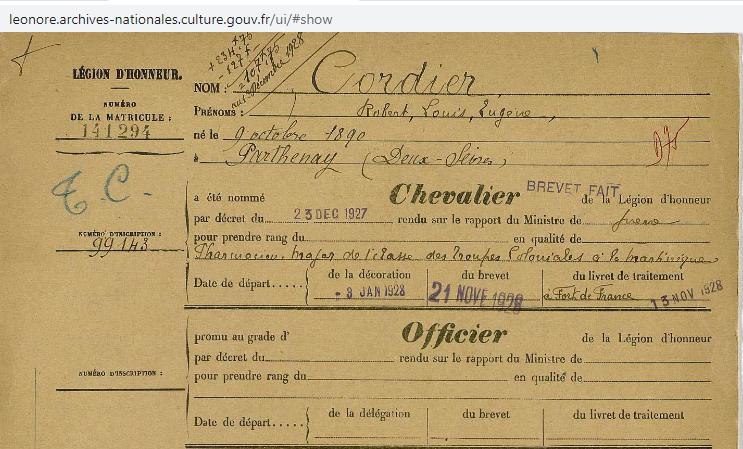 leonore.archives-nationales.culture.gouv.fr/ui/#show
LÉGION D'HONNEUR.
NUMÉRO
DE LA MATRICULE :
141294
T. C.
NUMÉRO D'INSCRIPTION :
99143
NOM : Cordier,
PRÉNOMS : Robert, Louis, Eugène,
né le 9 octobre 1890
à Parthenay (Deux-Sèvres)
BREVET FAIT
a été nommé Chevalier de la Légion d'honneur
par décret du 23 DEC 1927 rendu sur le rapport du Ministre de
pour prendre rang du en qualité de
Pharmacien major de 1e classe des Troupes Coloniales à la Martinique
Date de départ..... de la décoration du brevet du livret de traitement
- 3 JAN 1928 21 NOVE 1928 à Fort de France 13 NOV 1928
promu au grade d' Officier de la Légion d'honneur
par décret du rendu sur le rapport du Ministre de
NUMÉRO D'INSCRIPTION :
pour prendre rang du en qualité de
Date de départ..... de la délégation du brevet du livret de traitement